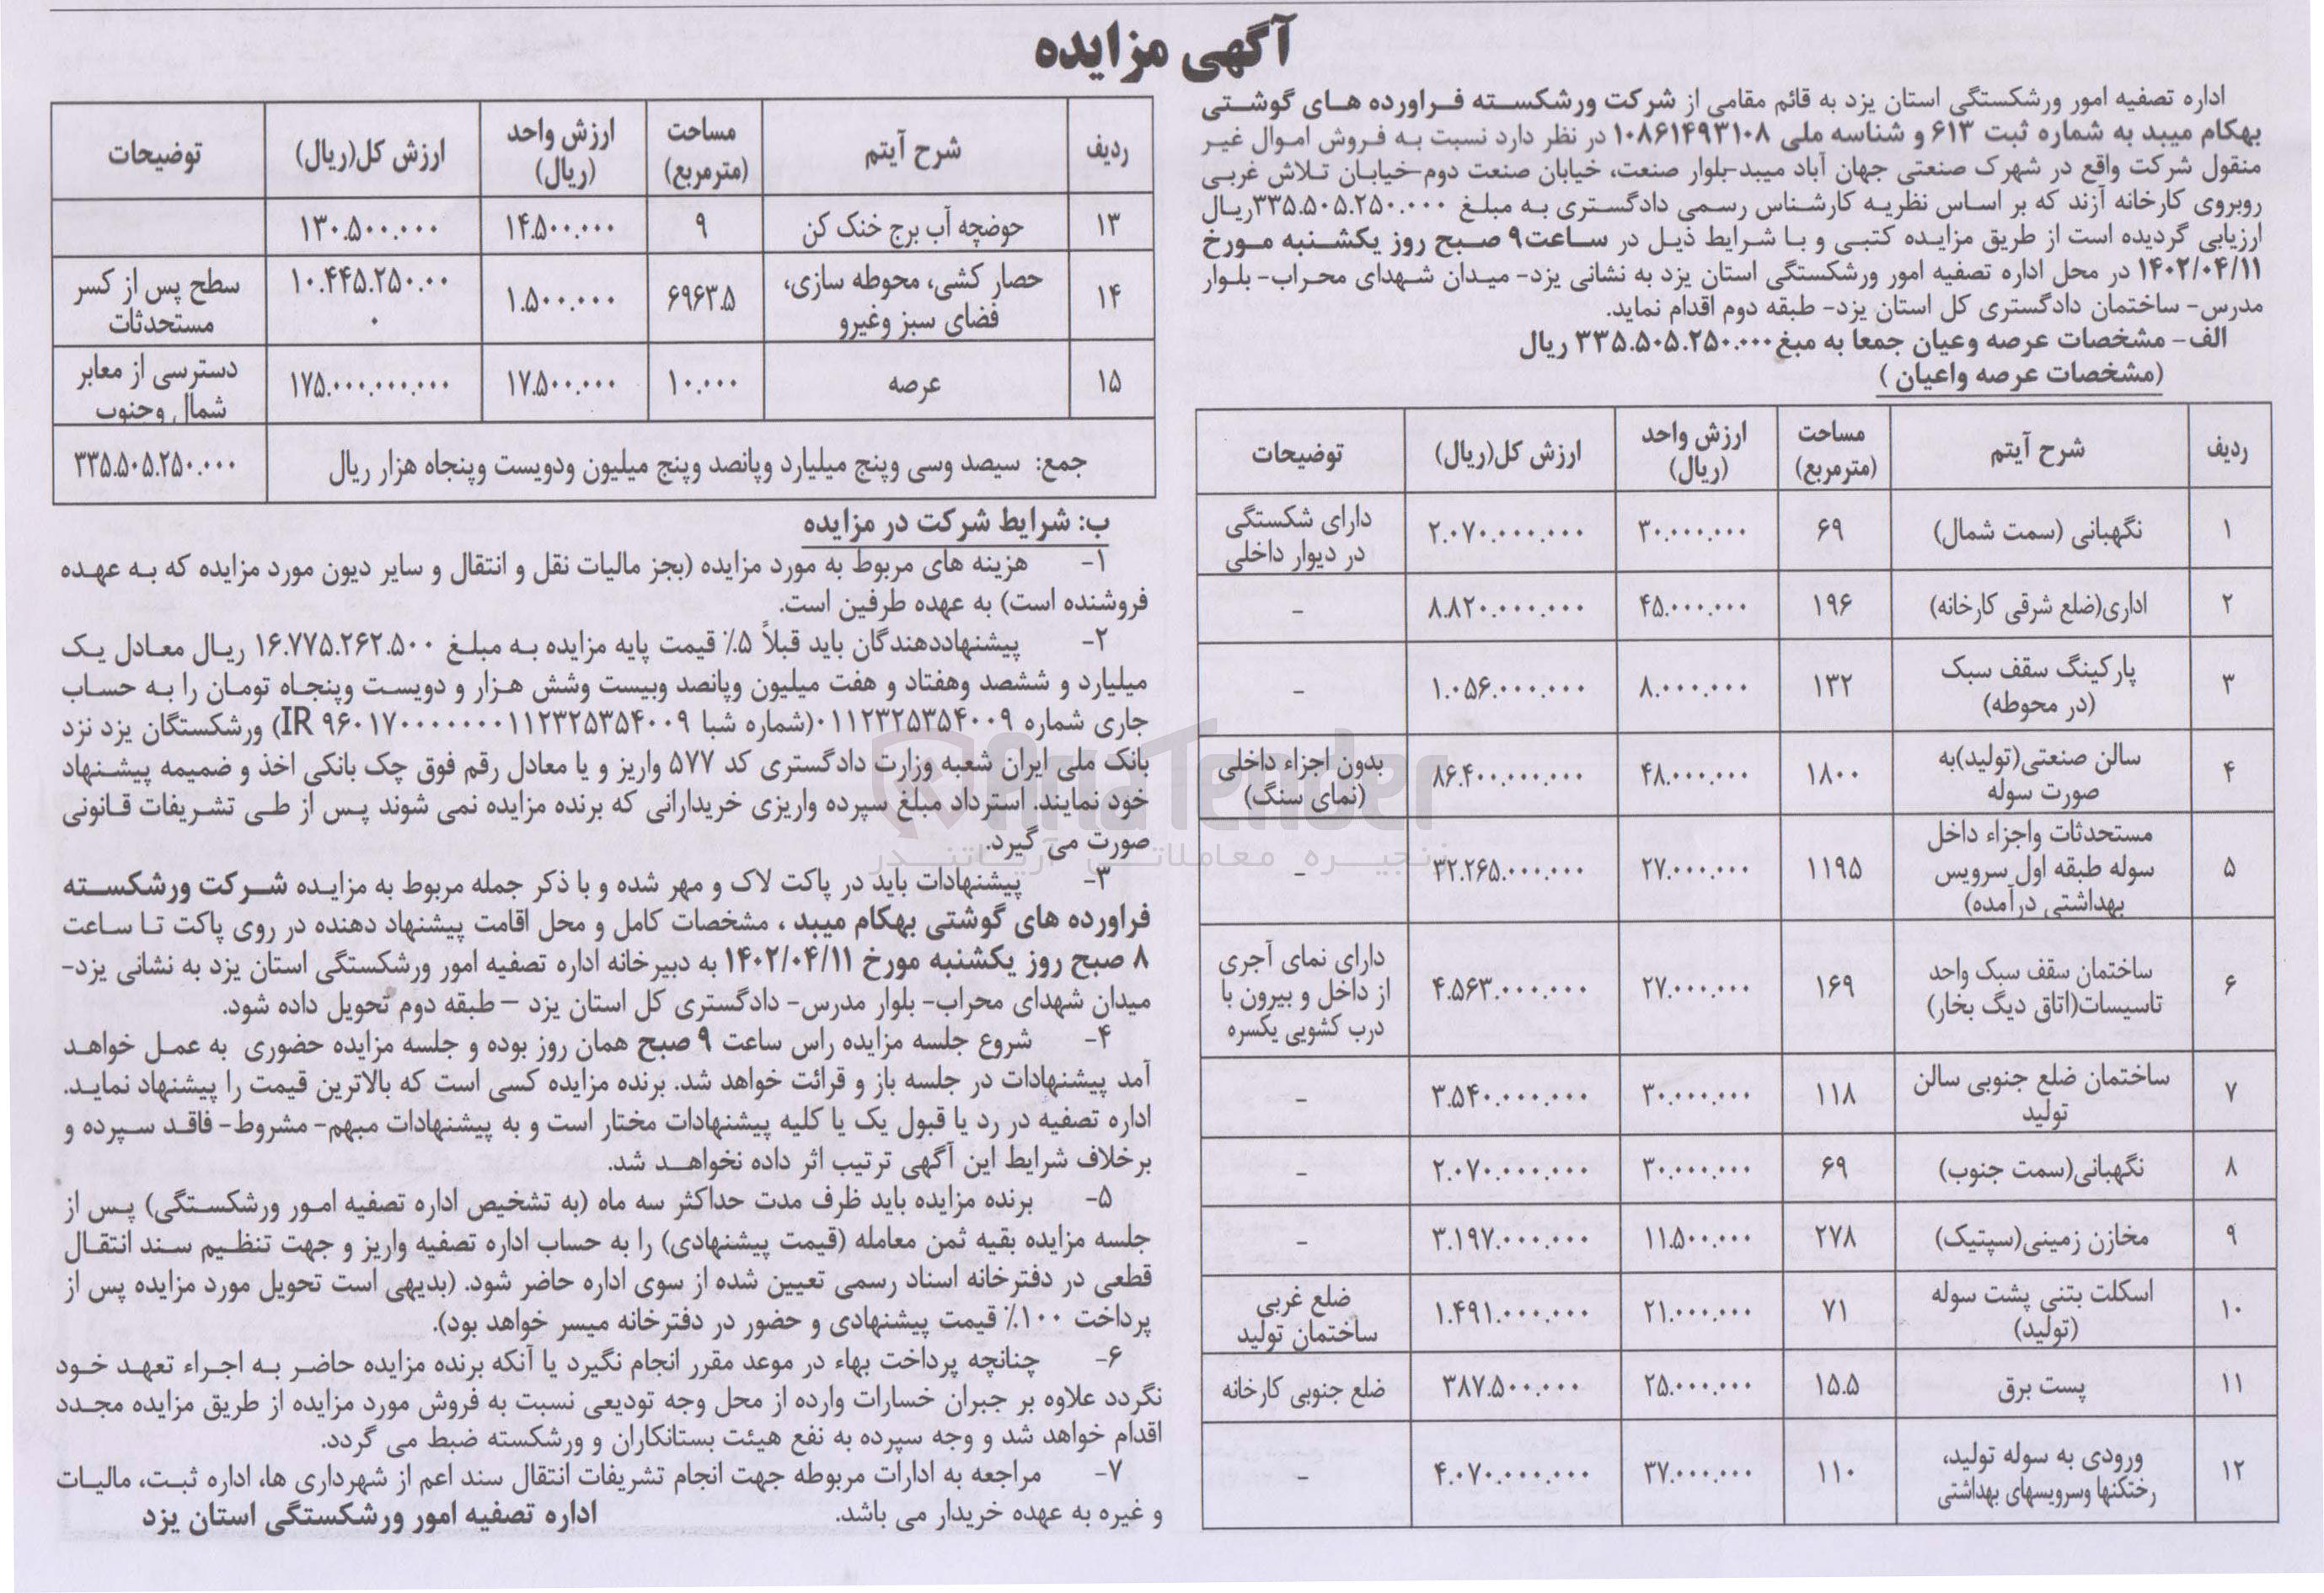 آگهی مزایده
اداره تصفیه امور ورشکستگی استان یزد به قائم مقامی از شرکت ورشکسته فراورده های گوشتی
بهکام میبد به شماره ثبت ۶۱۳ و شناسه ملی ۱۰۸۶۱۴۹۳۱۰۸ در نظر دارد نسبت به فروش اموال غیر
منقول شرکت واقع در شهرک صنعتی جهان آباد میبد-بلوار صنعت، خیابان صنعت دوم-خیابان تلاش غربی
روبروی کارخانه آزند که بر اساس نظریه کارشناس رسمی دادگستری به مبلغ ۳۳۵.۵۰۵.۲۵۰.۰۰۰ریال
ارزیابی گردیده است از طریق مزایده کتبی و با شرایط ذیل در ساعت۹ صبح روز یکشنبه مورخ
۱۴۰۲/۰۴/۱۱ در محل اداره تصفیه امور ورشکستگی استان یزد به نشانی یزد- میدان شهدای محراب- بلوار
مدرس- ساختمان دادگستری کل استان یزد- طبقه دوم اقدام نماید.
الف- مشخصات عرصه وعیان جمعا به مبغ۳۳۵.۵۰۵.۲۵۰.۰۰۰ ریال
(مشخصات عرصه واعیان )
ردیف | شرح آیتم | مساحت (مترمربع) | ارزش واحد (ریال) | ارزش کل(ریال) | توضیحات
۱ | نگهبانی (سمت شمال) | ۶۹ | ۳۰.۰۰۰.۰۰۰ | ۲.۰۷۰.۰۰۰.۰۰۰ | دارای شکستگی در دیوار داخلی
۲ | اداری(ضلع شرقی کارخانه) | ۱۹۶ | ۴۵.۰۰۰.۰۰۰ | ۸.۸۲۰.۰۰۰.۰۰۰ | -
۳ | پارکینگ سقف سبک (در محوطه) | ۱۳۲ | ۸.۰۰۰.۰۰۰ | ۱.۰۵۶.۰۰۰.۰۰۰ | -
۴ | سالن صنعتی(تولید)به صورت سوله | ۱۸۰۰ | ۴۸.۰۰۰.۰۰۰ | ۸۶.۴۰۰.۰۰۰.۰۰۰ | بدون اجزاء داخلی (نمای سنگ)
۵ | مستحدثات واجزاء داخل سوله طبقه اول سرویس بهداشتی درآمده) | ۱۱۹۵ | ۲۷.۰۰۰.۰۰۰ | ۳۲.۲۶۵.۰۰۰.۰۰۰ | -
۶ | ساختمان سقف سبک واحد تاسیسات(اتاق دیگ بخار) | ۱۶۹ | ۲۷.۰۰۰.۰۰۰ | ۴.۵۶۳.۰۰۰.۰۰۰ | دارای نمای آجری از داخل و بیرون با درب کشویی یکسره
۷ | ساختمان ضلع جنوبی سالن تولید | ۱۱۸ | ۳۰.۰۰۰.۰۰۰ | ۳.۵۴۰.۰۰۰.۰۰۰ | -
۸ | نگهبانی(سمت جنوب) | ۶۹ | ۳۰.۰۰۰.۰۰۰ | ۲.۰۷۰.۰۰۰.۰۰۰ | -
۹ | مخازن زمینی(سپتیک) | ۲۷۸ | ۱۱.۵۰۰.۰۰۰ | ۳.۱۹۷.۰۰۰.۰۰۰ | -
۱۰ | اسکلت بتنی پشت سوله (تولید) | ۷۱ | ۲۱.۰۰۰.۰۰۰ | ۱.۴۹۱.۰۰۰.۰۰۰ | ضلع غربی ساختمان تولید
۱۱ | پست برق | ۱۵.۵ | ۲۵.۰۰۰.۰۰۰ | ۳۸۷.۵۰۰.۰۰۰ | ضلع جنوبی کارخانه
۱۲ | ورودی به سوله تولید، رختکنها وسرویسهای بهداشتی | ۱۱۰ | ۳۷.۰۰۰.۰۰۰ | ۴.۰۷۰.۰۰۰.۰۰۰ | -
ردیف | شرح آیتم | مساحت (مترمربع) | ارزش واحد (ریال) | ارزش کل(ریال) | توضیحات
۱۳ | حوضچه آب برج خنک کن | ۹ | ۱۴.۵۰۰.۰۰۰ | ۱۳۰.۵۰۰.۰۰۰
۱۴ | حصار کشی، محوطه سازی، فضای سبز وغیرو | ۶۹۶۳.۵ | ۱.۵۰۰.۰۰۰ | ۱۰.۴۴۵.۲۵۰.۰۰۰ | سطح پس از کسر مستحدثات
۱۵ | عرصه | ۱۰.۰۰۰ | ۱۷.۵۰۰.۰۰۰ | ۱۷۵.۰۰۰.۰۰۰.۰۰۰ | دسترسی از معابر شمال وجنوب
جمع: سیصد وسی وپنج میلیارد وپانصد وپنج میلیون ودویست وپنجاه هزار ریال | ۳۳۵.۵۰۵.۲۵۰.۰۰۰
ب: شرایط شرکت در مزایده
۱- هزینه های مربوط به مورد مزایده (بجز مالیات نقل و انتقال و سایر دیون مورد مزایده که به عهده
فروشنده است) به عهده طرفین است.
۲- پیشنهاددهندگان باید قبلاً ۵٪ قیمت پایه مزایده به مبلغ ۱۶.۷۷۵.۲۶۲.۵۰۰ ریال معادل یک
میلیارد و ششصد وهفتاد و هفت میلیون وپانصد وبیست وشش هزار و دویست وپنجاه تومان را به حساب
جاری شماره ۰۱۱۲۳۲۵۳۵۴۰۰۹(شماره شبا IR ۹۶۰۱۷۰۰۰۰۰۰۰۱۱۲۳۲۵۳۵۴۰۰۹) ورشکستگان یزد نزد
بانک ملی ایران شعبه وزارت دادگستری کد ۵۷۷ واریز و یا معادل رقم فوق چک بانکی اخذ و ضمیمه پیشنهاد
خود نمایند. استرداد مبلغ سپرده واریزی خریدارانی که برنده مزایده نمی شوند پس از طی تشریفات قانونی
صورت می گیرد.
۳- پیشنهادات باید در پاکت لاک و مهر شده و با ذکر جمله مربوط به مزایده شرکت ورشکسته
فراورده های گوشتی بهکام میبد ، مشخصات کامل و محل اقامت پیشنهاد دهنده در روی پاکت تا ساعت
۸ صبح روز یکشنبه مورخ ۱۴۰۲/۰۴/۱۱ به دبیرخانه اداره تصفیه امور ورشکستگی استان یزد به نشانی یزد-
میدان شهدای محراب- بلوار مدرس- دادگستری کل استان یزد – طبقه دوم تحویل داده شود.
۴- شروع جلسه مزایده راس ساعت ۹ صبح همان روز بوده و جلسه مزایده حضوری به عمل خواهد
آمد پیشنهادات در جلسه باز و قرائت خواهد شد. برنده مزایده کسی است که بالاترین قیمت را پیشنهاد نماید.
اداره تصفیه در رد یا قبول یک یا کلیه پیشنهادات مختار است و به پیشنهادات مبهم- مشروط- فاقد سپرده و
برخلاف شرایط این آگهی ترتیب اثر داده نخواهد شد.
۵- برنده مزایده باید ظرف مدت حداکثر سه ماه (به تشخیص اداره تصفیه امور ورشکستگی) پس از
جلسه مزایده بقیه ثمن معامله (قیمت پیشنهادی) را به حساب اداره تصفیه واریز و جهت تنظیم سند انتقال
قطعی در دفترخانه اسناد رسمی تعیین شده از سوی اداره حاضر شود. (بدیهی است تحویل مورد مزایده پس از
پرداخت ۱۰۰٪ قیمت پیشنهادی و حضور در دفترخانه میسر خواهد بود).
۶- چنانچه پرداخت بهاء در موعد مقرر انجام نگیرد یا آنکه برنده مزایده حاضر به اجراء تعهد خود
نگردد علاوه بر جبران خسارات وارده از محل وجه تودیعی نسبت به فروش مورد مزایده از طریق مزایده مجدد
اقدام خواهد شد و وجه سپرده به نفع هیئت بستانکاران و ورشکسته ضبط می گردد.
۷- مراجعه به ادارات مربوطه جهت انجام تشریفات انتقال سند اعم از شهرداری ها، اداره ثبت، مالیات
و غیره به عهده خریدار می باشد.
اداره تصفیه امور ورشکستگی استان یزد
AriaTender
زنجیره معاملاتی آریاتندر